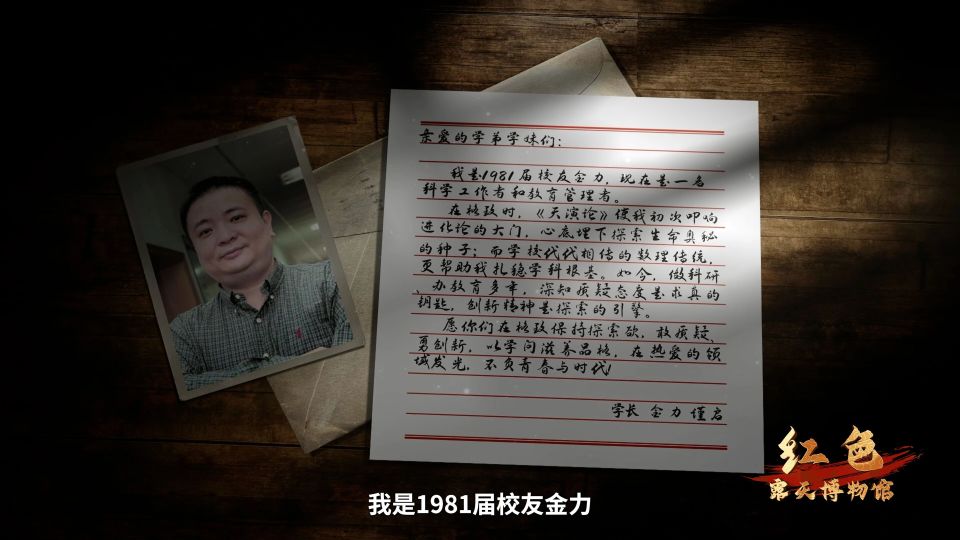 亲爱的学弟学妹们：
我是1981届校友金力，现在是一名
科学工作者和教育管理者。
在格致时，《天演论》使我初次叩响
进化论的大门，心底埋下探索生命奥秘
的种子；而学校代代相传的数理传统，
更帮助我扎稳学科根基。如今，做科研
、办教育多年，深知质疑态度是求真的
钥匙，创新精神是探索的引擎。
愿你们在格致保持探索欲，敢质疑、
勇创新，以学问滋养品格，在热爱的领
域发光，不负青春与时代！
学长 金力 谨启
红色
露天博物馆
我是1981届校友金力